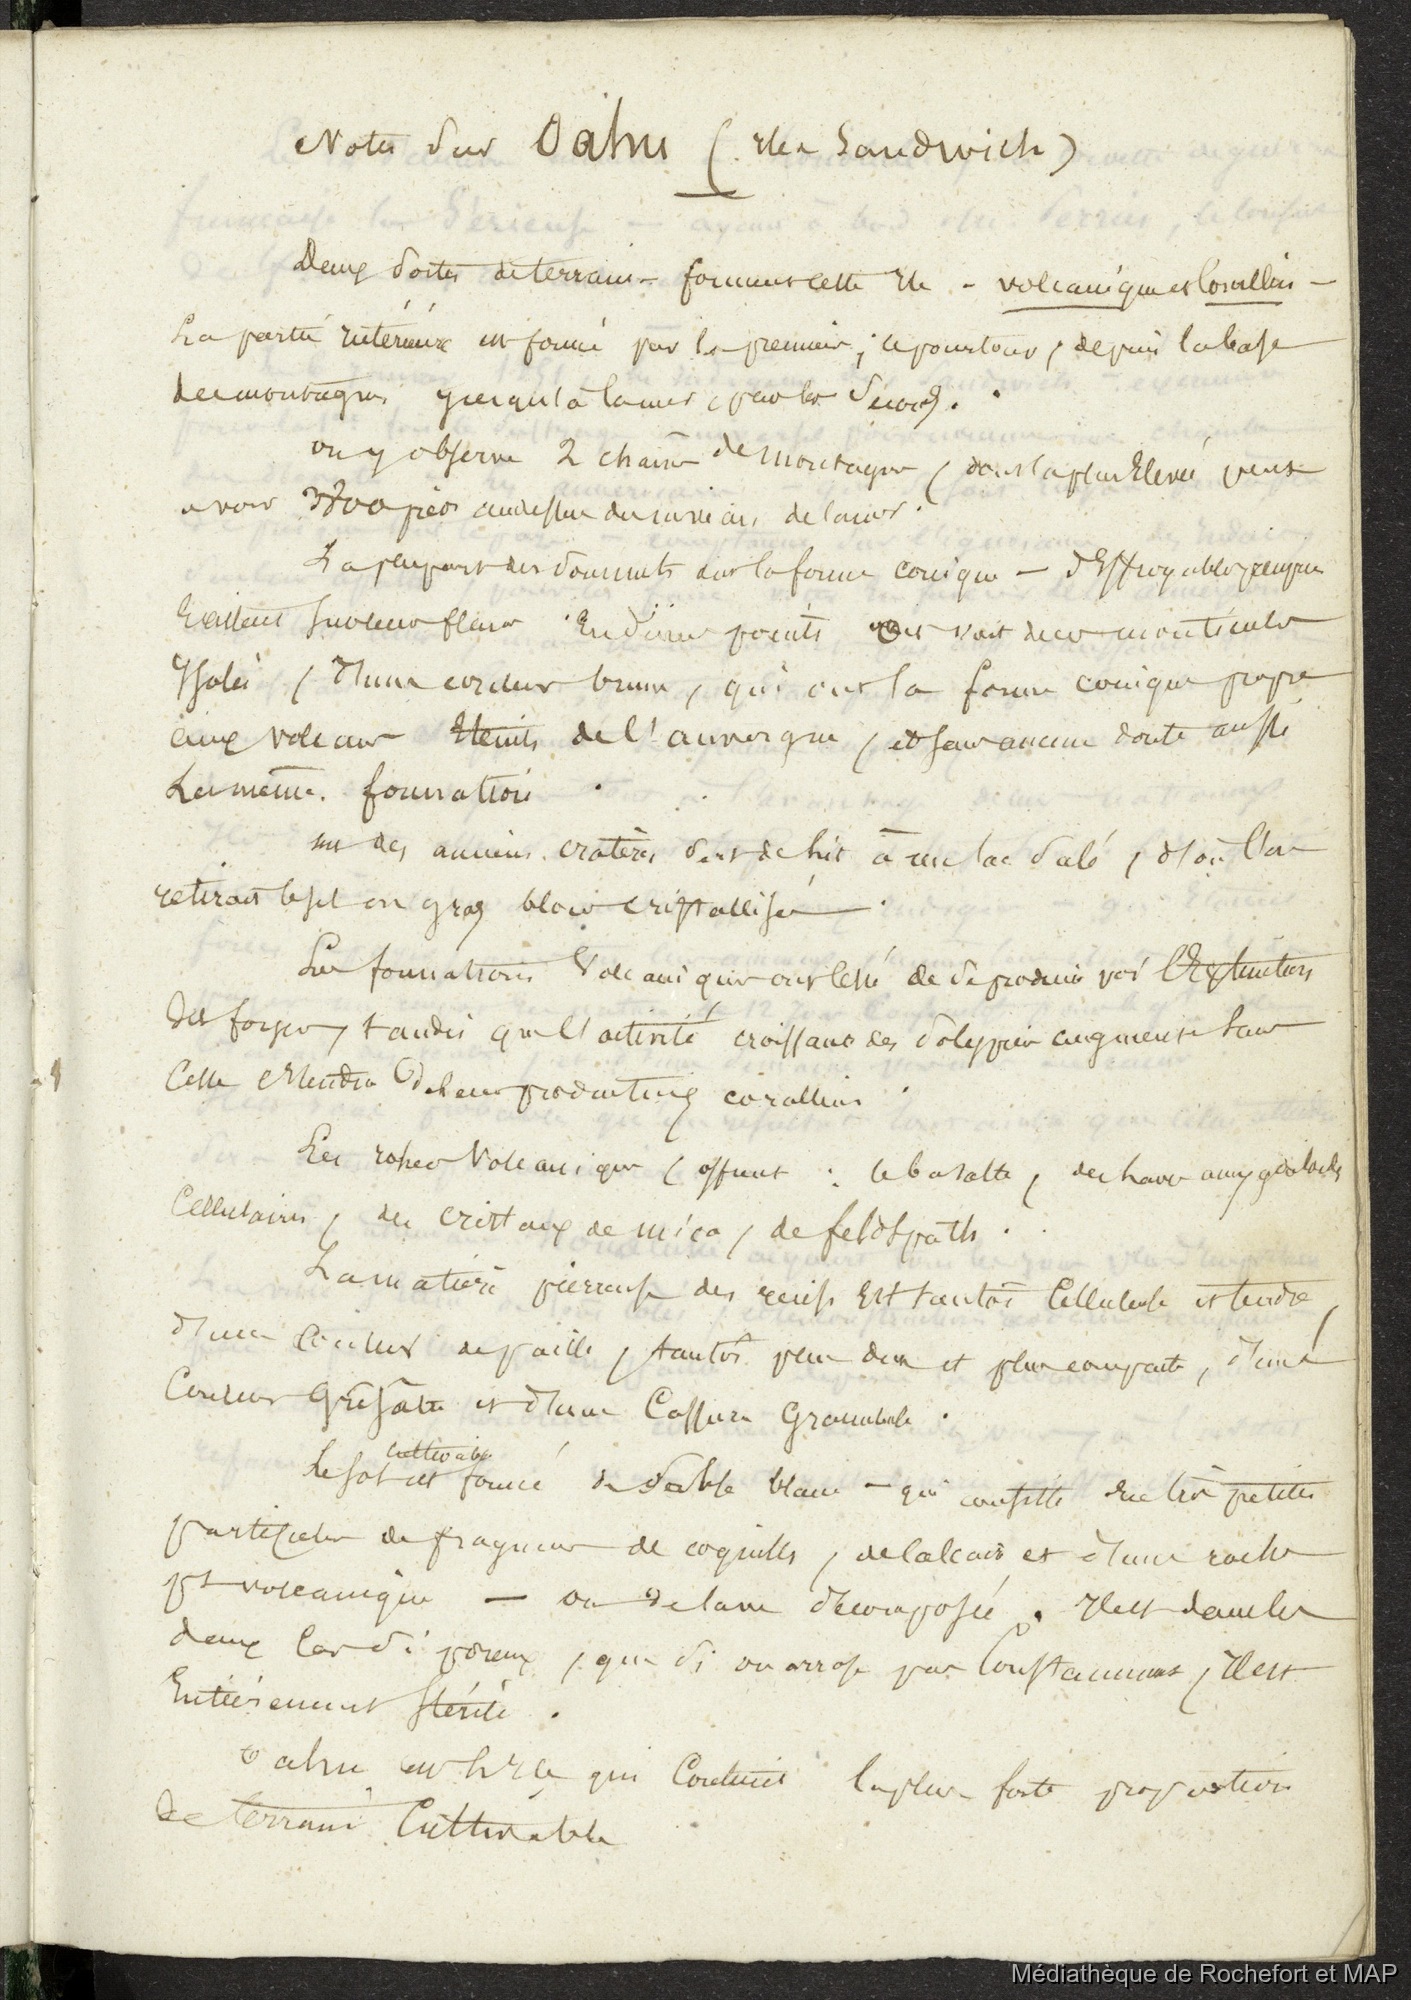 Notes sur Oahu (Iles Sandwich)
Deux sortes de terrains forment cette Ile - volcanique et corallin -
La partie intérieure est formée par le premier ; le pourtour, depuis la base
des montagnes jusqu'à la mer, par le second.
on y observe 2 chaines de montagnes, dont la plus Elevée peut
avoir pieds au dessus du niveau de la mer.
La plupart des sommets ont la forme conique - d'Effroyables
Existent sur leurs flancs. En divers points on voit des monticules
Isolés, d'une couleur brune, qui ont la forme conique propre
aux volcans Eteints de l'auvergne, et sans aucun doute aussi
La même formation.
un des anciens cratères sert de lit à un lac salé, d'où l'on
retirait le sel en gros blocs cristallisés.
Les formations Volcaniques ont cessé de se produire par l'Extinction
des foyers, tandis que l'activité croissante des polypiers augmente sans
cesse l'étendue de leurs productions corallines.
Les roches Volcaniques offrent : le basalte, des laves amygdaloïdes
Cellulaires, des cristaux de mica, de feldspath.
La matière pierreuse des recifs Est tantôt Celluleuse et tendre,
d'une couleur de paille, tantôt plus dure et plus compacte, d'une
couleur Grisâtre et d'une Cassure Granuleuse.
Le sol cultivable est formé de sable blanc - qui consiste En très petites
particules de fragmens de coquilles, de calcaire et d'une roche
pt volcanique - ou de lave décomposée. Il est dans les
deux Cas si poreux, que si on arrose pas Constamment, Il est
Entièrement stérile.
Oahu est l'Ile qui Contient la plus forte proportion
de terrain Cultivable
Médiathèque de Rochefort et MAP